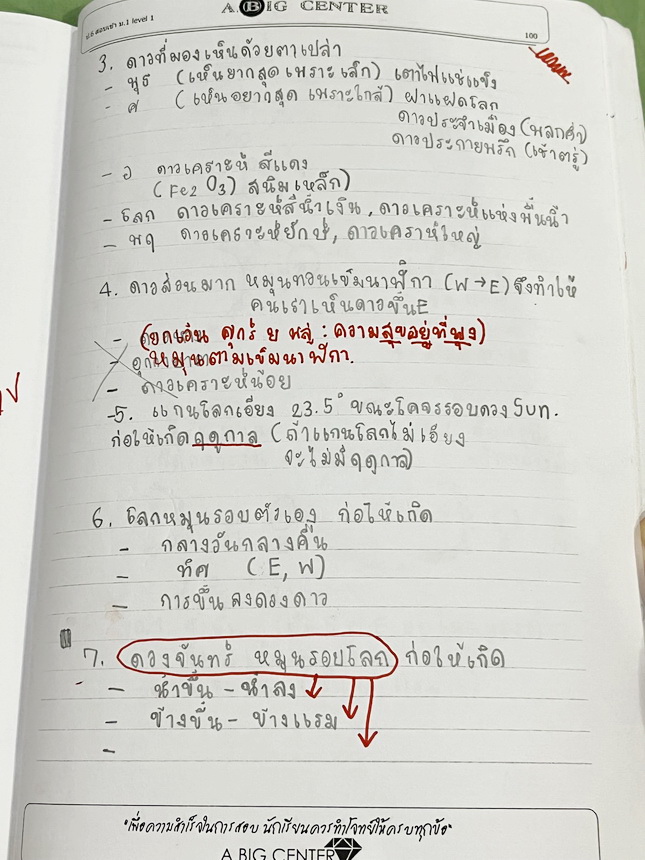 A BIG CENTER
ป.6 สอบเข้า ม.1 level 1
100
3. ดาวที่มองเห็นด้วยตาเปล่า
- พุธ (เห็นยากสุดเพราะเล็ก) เตาไฟแช่แข็ง
- ศ (เห็นอยากสุด เพราะใกล้) ฝาแฝดโลก
ดาวประจำเมือง (พลบค่ำ)
ดาวประกายพรึก (เช้าตรู่)
- อ ดาวเคราะห์ สีแดง
(Fe2 O3) สนิมเหล็ก)
- โลก ดาวเคราะห์สีน้ำเงิน, ดาวเคราะห์แห่งพื้นน้ำ
- พฤ ดาวเคราะห์ยักษ์, ดาวเคราห์ใหญ่
4. ดาวส่วนมาก หมุนทวนเข็มนาฬิกา (W→E) จึงทำให้
คนเราเห็นดาวขึ้นE
- (ยกเว้น ศุกร์ ย พลู : ความสุขอยู่ที่พุง)
- หมุนตามเข็มนาฬิกา.
- ดาวเคราะห์น้อย
-5. แกนโลกเอียง 23.5° ขณะโคจรรอบดวง Sun.
ก่อให้เกิดฤดูกาล (ถ้าแกนโลกไม่เอียง
จะไม่มีฤดูกาล)
6. โลกหมุนรอบตัวเอง ก่อให้เกิด
- กลางวันกลางคืน
- ทิศ (E, W)
- การขึ้น ลงดวงดาว
7. ดวงจันทร์ หมุนรอบโลก ก่อให้เกิด
- น้ำขึ้น - น้ำลง
- ข้างขึ้น - ข้างแรม
-
"เพื่อความสำเร็จในการสอบ นักเรียนควรทำโจทย์ให้ครบทุกข้อ"
A BIG CENTER